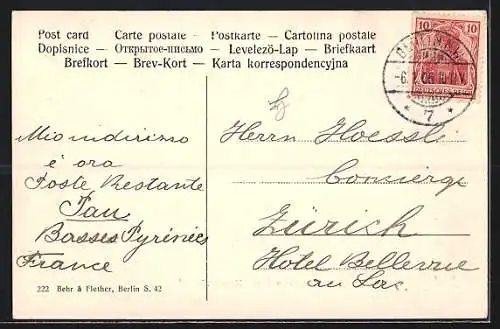 Post card — Carte postale — Postkarte — Cartolina postale
Dopisnice — Открытое письмо — Levelező-Lap — Briefkaart
Brefkort — Brev-Kort — Karta korrespondencyjna
10 10
7
Mio indirizzo
è ora
Poste Restante
Pau
Basses Pyrénées
France
Herrn Hoessli
Concierge
Zürich
Hotel Bellevue
au Lac.
222 Behr & Flether, Berlin S. 42